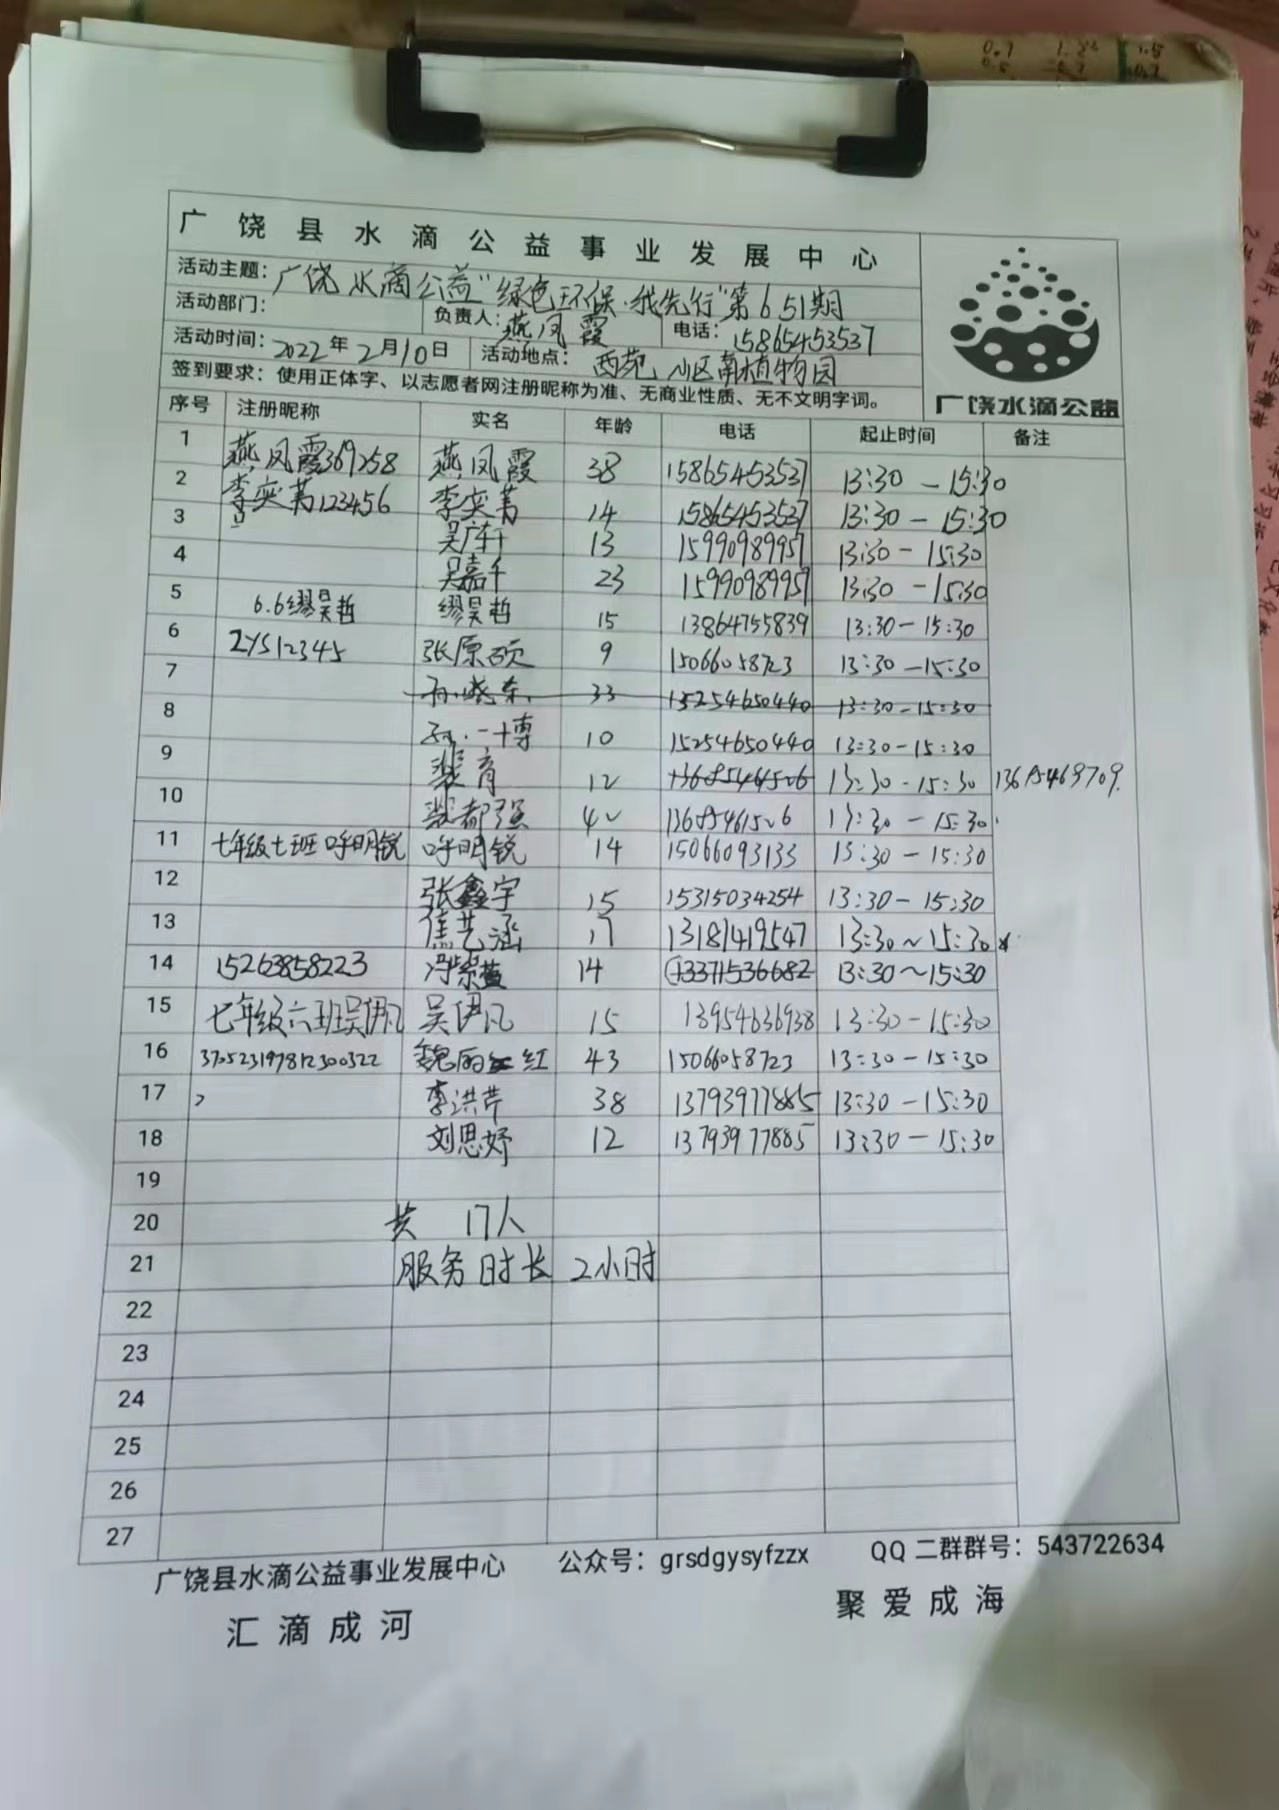 广饶县水滴公益事业发展中心
活动主题：广饶水滴公益“绿色环保·我先行”第651期
活动部门： 负责人：燕凤霞 电话：15865453537
活动时间：2022年2月10日 活动地点：西苑小区南植物园
签到要求：使用正体字、以志愿者网注册昵称为准、无商业性质、无不文明字词。
广饶水滴公益
序号 注册昵称 实名 年龄 电话 起止时间 备注
1 燕凤霞369258 燕凤霞 38 15865453537 13:30-15:30
2 李奕菁123456 李奕菁 14 15865453537 13:30-15:30
3 吴广轩 13 15990989957 13:30-15:30
4 吴嘉千 23 15990989957 13:30-15:30
5 6.6缪昊哲 缪昊哲 15 13864755839 13:30-15:30
6 ZYS12345 张原硕 9 15066058723 13:30-15:30
7 孙晓东 33 15254650440 13:30-15:30
8 孙一博 10 15254650440 13:30-15:30
9 裴育 12 13:30-15:30
10 13:30-15:30
11 七年级七班呼明锐 呼明锐 14 15066093133 13:30-15:30
12 张鑫宇 15 15315034254 13:30-15:30
13 焦艺涵 17 13181419547 13:30~15:30
14 15263858223 冯紫萱 14 13371536682 13:30~15:30
15 七年级六班吴伊凡 吴伊凡 15 13954636938 13:30-15:30
16 370523197812300322 魏丽红 43 15066058723 13:30-15:30
17 李洪芹 38 13793977885 13:30-15:30
18 刘思妤 12 13793977885 13:30-15:30
19
20 共 17人
21 服务时长 2小时
22
23
24
25
26
27
广饶县水滴公益事业发展中心 公众号：grsdgysyfzzx QQ二群群号：543722634
汇滴成河 聚爱成海